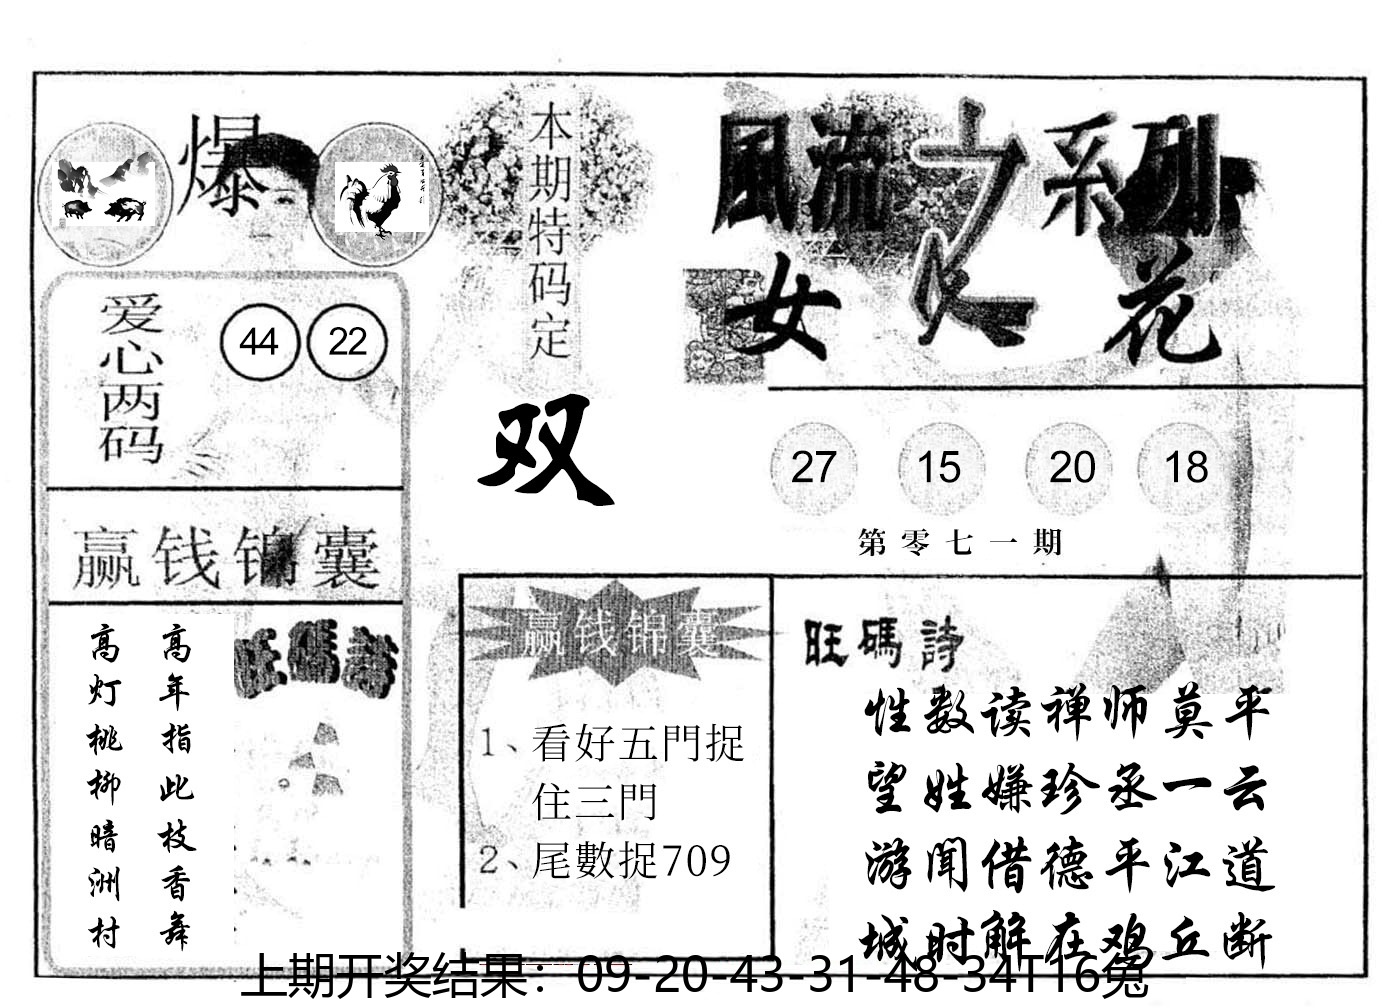 爆
本期特码定
双
風流之系列
女人花
爱心两码
44 22
27 15 20 18
第零七一期
赢钱锦囊
高年指此枝香舞
高灯桃柳暗洲村
旺碼詩
赢钱锦囊
1、看好五門捉
住三門
2、尾數捉709
旺碼詩
性数读禅师莫平
望姓嫌珍丞一云
游闻借德平江道
城时解在鸡丘断
上期开奖结果：09-20-43-31-48-34T16兔